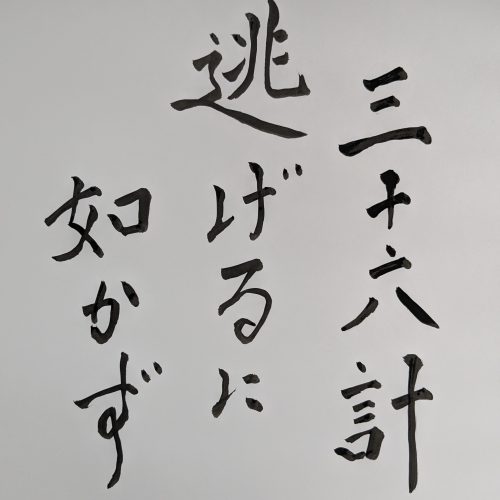 三十六計
逃げるに
如かず